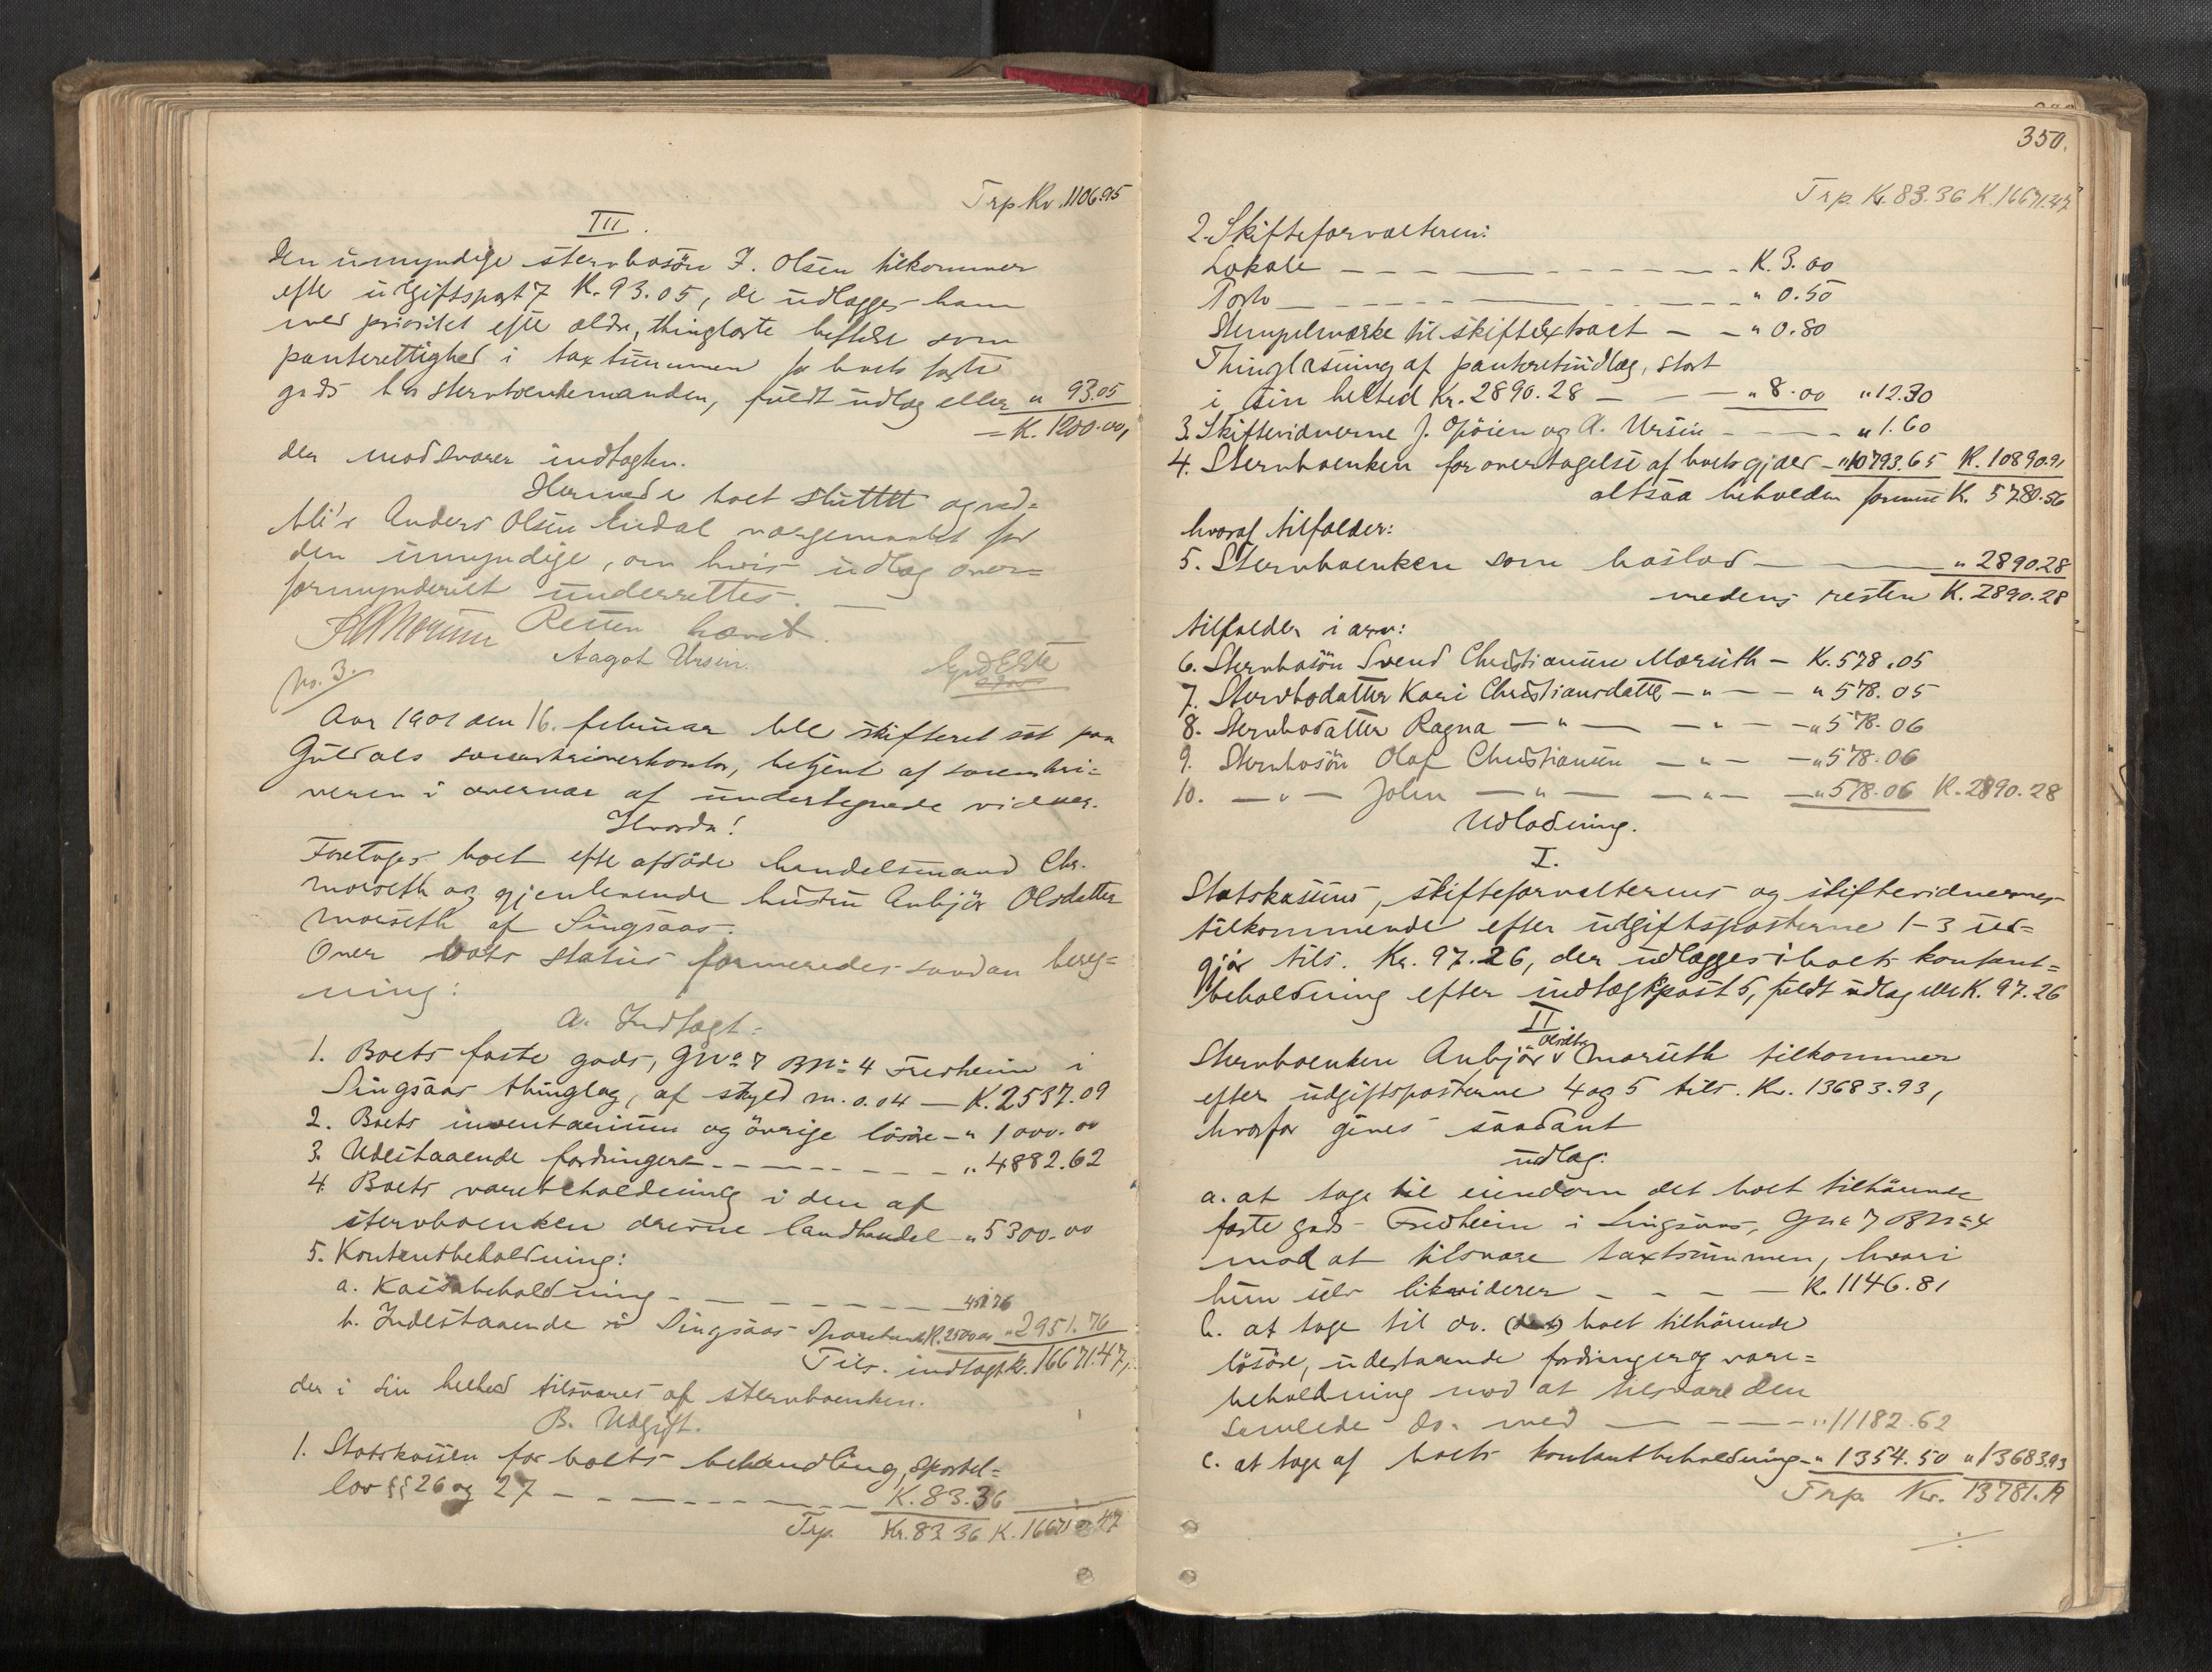 Trp Kr. 1106.95
III.
Den umyndige stervbosön J. Olsen tilkommer
efter udgiftspost 7 K. 93.05, de udlægges ham
med prioritet efter ældre, thinglæste heftelser som
panterettighed i taxtsummen for boets faste
gods hos stervboenkemanden, fuldt udlag eller " 93.05
= K. 1200.00,
der modsvarer indtægten.
Hermed er boet sluttet og ned-
blir Anders Olsen Endal værgemaalet for
den umyndige, om hvis udlæg over-
formynderiet underrettes.
Retten hævet.
Aagot Ursin.
No. 3.
Aar 1901 den 16. februar ble skifteret sat paa
Guldals sorenskriverkontor, betjent af sorenskri-
veren i overvær af undertegnede vidner.
Hvorda!
Foretages boet efter afdöde handelsmand Chr.
Morseth og gjenlevende hustru Anbjör Olsdatter
Morseth af Singsaas.
Over boets status formeredes saadan bereg-
ning:
A. Indtægt:
1. Boets faste gods, Gno 7 Bno 4 Fredheim i
Singsaas thinglag, af skyld m. 0.04 — K. 2537.09
2. Boets inventarium og övrige lösöre — " 1000.00
3. Udestaaende fordringer — " 4882.62
4. Boets varebeholdning i den af
stervboenken drevne landhandel — " 5300.00
5. Kontantbeholdning:
a. Kassabeholdning — 451.76
b. Indestaaende i Singsaas Sparebank K. 2500.00 " 2951.76
Tils. indtægt k. 16671.47,
der i sin helhed tilsvares af stervboenken.
B. Udgift.
1. Statskassen for boets behandling, sportel-
lov §§ 26 og 27 — K. 83.36
Trp. Kr. 83.36 K. 16671.47
350.
Trp. Kr. 83.36 K. 16671.47
2. Skifteforvalteren:
Lokale — K. 3.00
Porto — " 0.50
Stempelmærke til skifteextract — " 0.80
Thinglæsning af panteretsudlæg, stort
i sin helhed Kr. 2890.28 — " 8.00 " 12.30
3. Skiftevidnerne J. Öpöien og A. Ursin — " 1.60
4. Stervboenken for overtagelse af boets gjæld — " 10793.65 K. 10890.91
altsaa beholden formue K. 5780.56
hvoraf tilfalder:
5. Stervboenken som boslod — " 2890.28
medens resten K. 2890.28
tilfalder i arv:
6. Stervbosön Svend Christiansen Morseth — K. 578.05
7. Stervbodatter Kari Christiansdatter — " — " 578.05
8. Stervbodatter Ragna — " — " — " 578.06
9. Stervbosön Olaf Christiansen — " — " 578.06
10. — " — John — " — " — " 578.06 K. 2890.28
Udlodning.
I.
Statskassens, skifteforvalterens og skiftevidnernes
tilkommende efter udgiftsposterne 1-3 ud-
gjör tils. Kr. 97.26, der udlægges i boets kontant-
beholdning efter indtægtspost 5, fuldt udlæg eller K. 97.26
II
Stervboenken Anbjör Olsdtr Morseth tilkommer
efter udgiftsposterne 4 og 5 tils. Kr. 13683.93,
hvorfor gives saadant
udlæg:
a. at tage til eiendom det boet tilhörende
faste gods Fredheim i Singsaas, Gno 7 Bno 4
mod at tilsvare taxtsummen, hvori
hun selv likviderer — K. 1146.81
b. at tage til do. (det) boet tilhörende
lösöre, udestaaende fordringer og vare-
beholdning mod at tilsvare den
samlede do. med — " 11182.62
c. at tage af boets kontantbeholdning — " 1354.50 " 13683.93
Trp. Kr. 13781.19